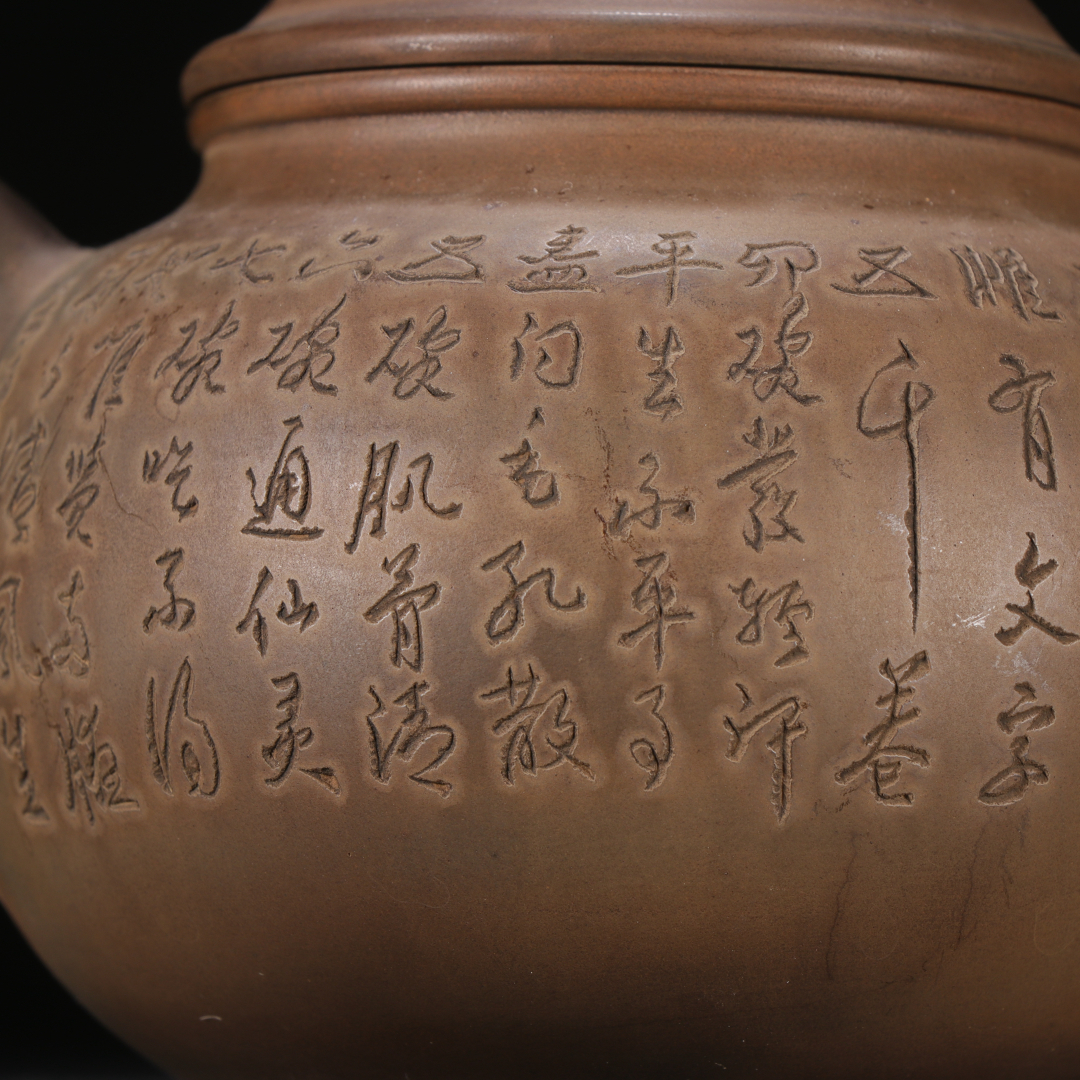 惟有文字
五千卷
四碗發輕汗
平生不平事
盡向毛孔散
五碗肌骨清
六碗通仙灵
七碗吃不得
唯覺兩腋
清風生